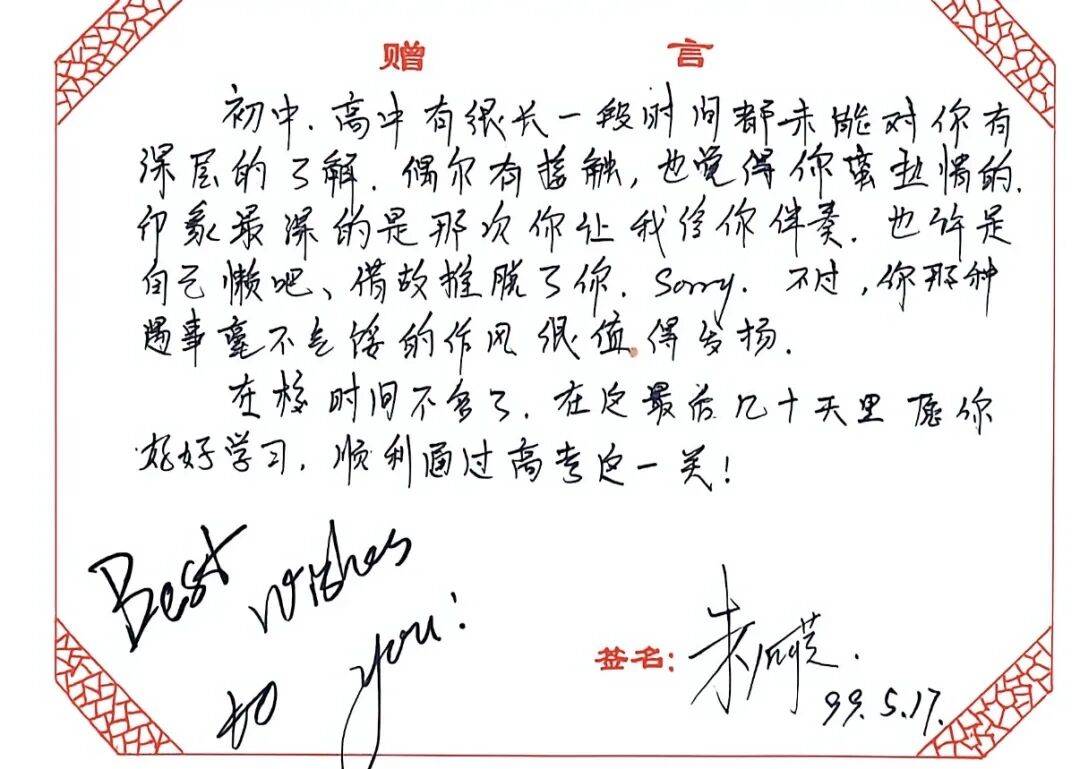 赠言
初中、高中有很长一段时间都未能对你有
深层的了解．偶尔有接触，也觉得你蛮热情的．
印象最深的是那次你让我给你伴奏．也许是
自己懒吧、借故推脱了你．Sorry．不过，你那种
遇事毫不气馁的作风很值得发扬．
在校时间不多了．在这最后几十天里愿你
好好学习，顺利通过高考这一关！
Best wishes
to you!
签名：朱
99.5.17.